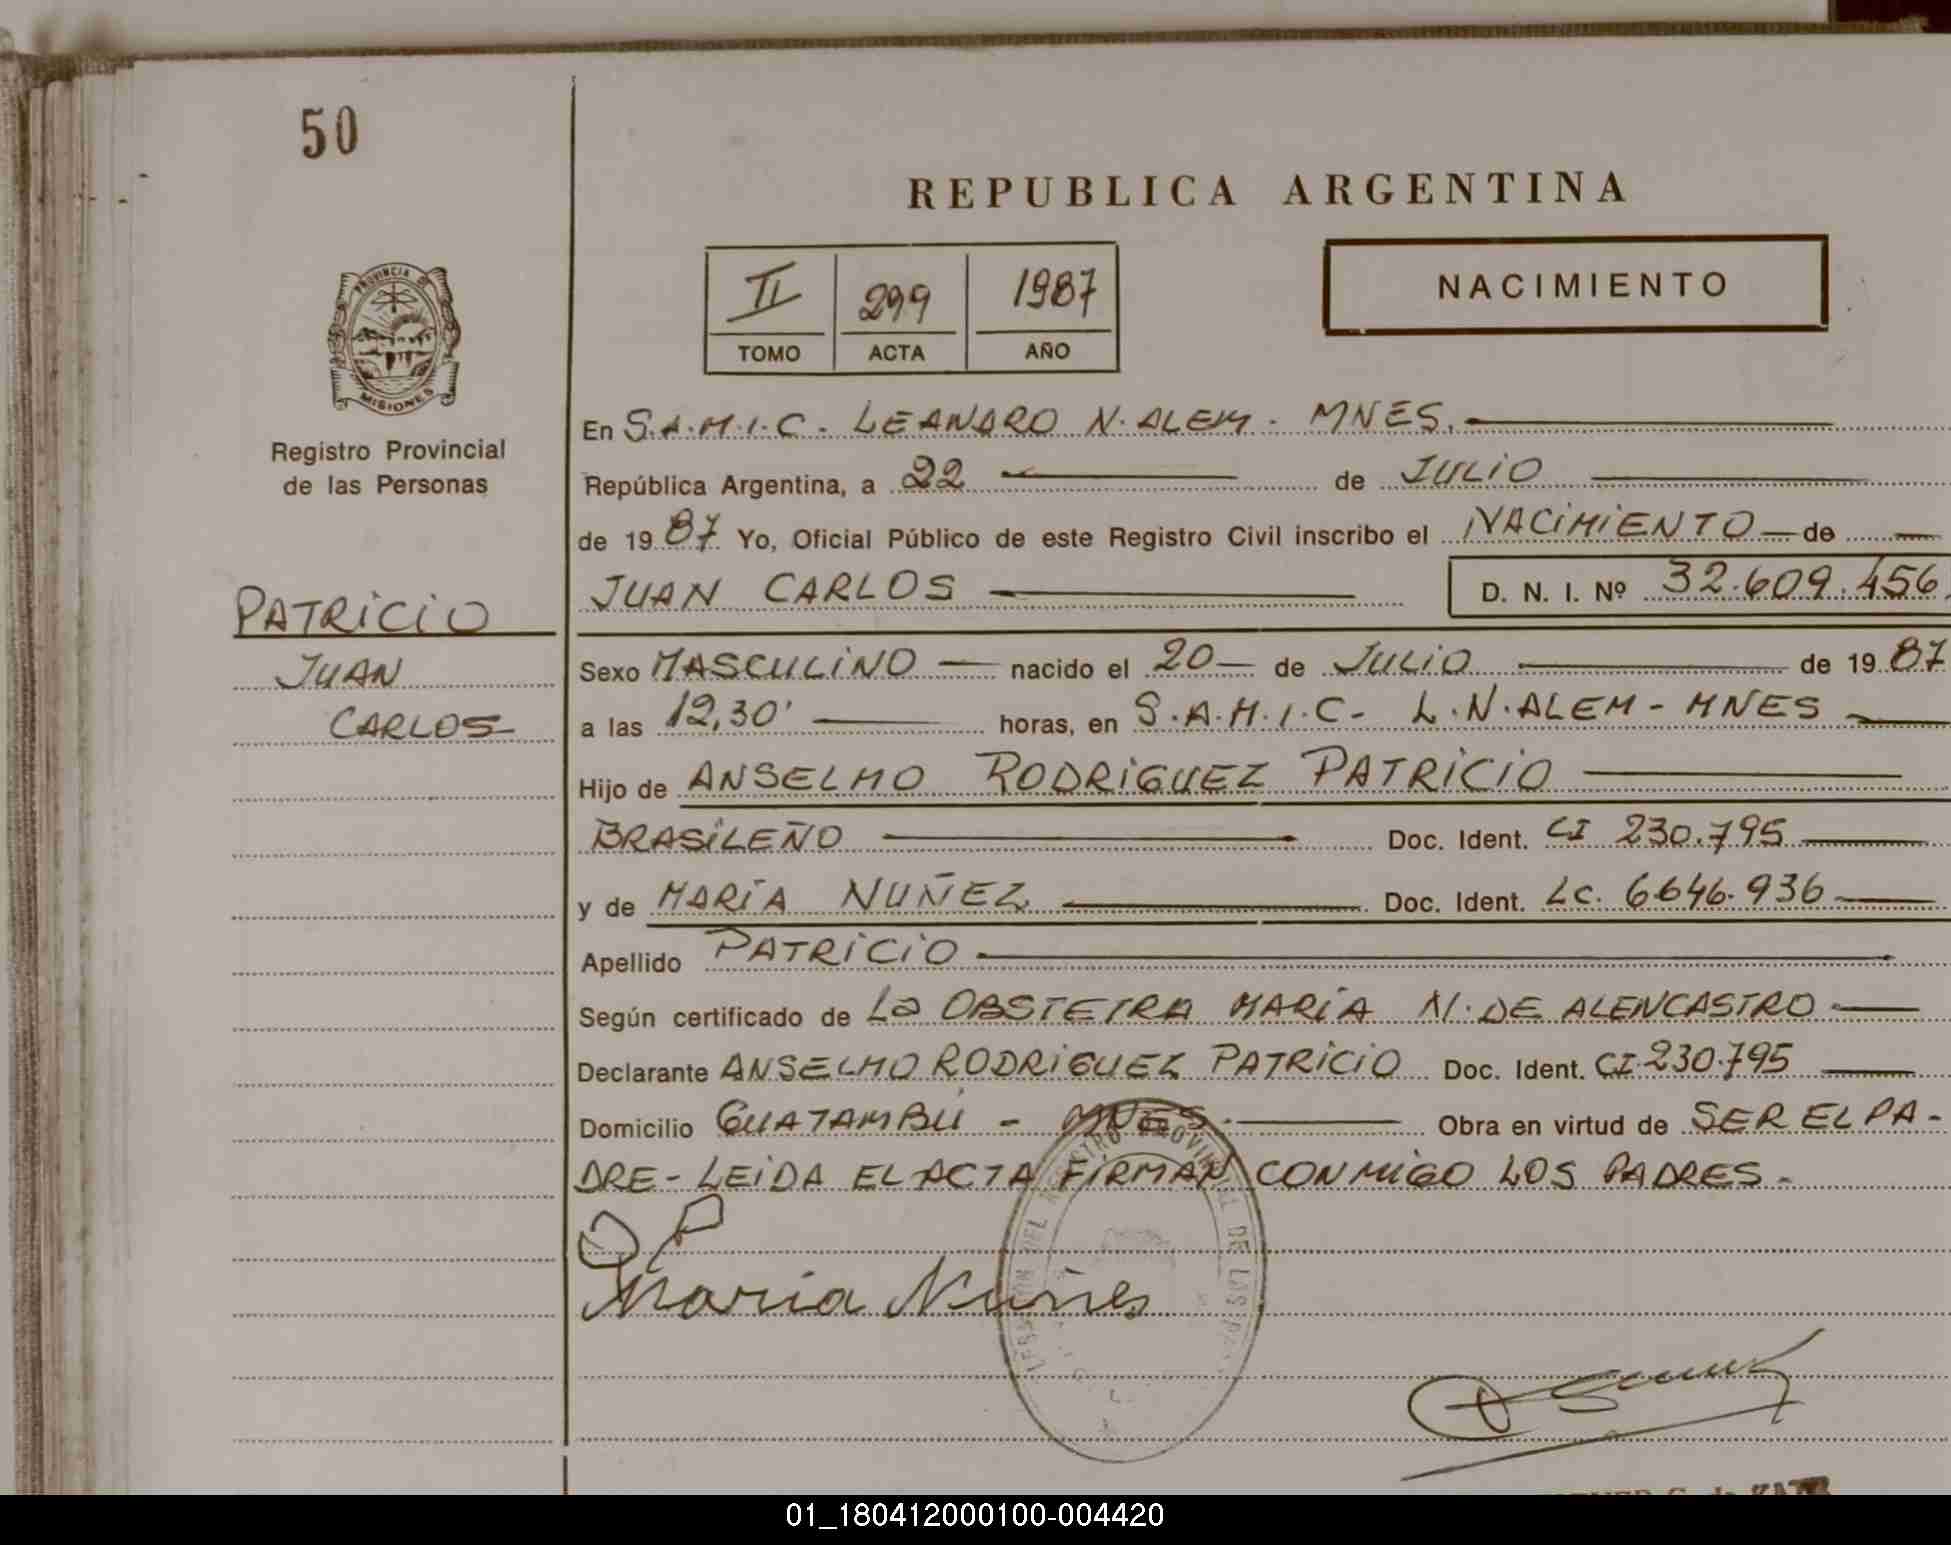 50
REPUBLICA ARGENTINA
II 299 1987
TOMO ACTA AÑO
NACIMIENTO
PROVINCIA DE
MISIONES
Registro Provincial
de las Personas
PATRICIO
JUAN
CARLOS
En S.A.M.I.C. LEANDRO N. ALEM - MNES.
República Argentina, a 22 de JULIO
de 1987 Yo, Oficial Público de este Registro Civil inscribo el NACIMIENTO de
JUAN CARLOS D. N. I. Nº 32.609.456
Sexo MASCULINO nacido el 20 de JULIO de 1987
a las 12,30' horas, en S.A.M.I.C- L.N.ALEM - MNES
Hijo de ANSELMO RODRIGUEZ PATRICIO
BRASILEÑO Doc. Ident. CI 230.795
y de MARÍA NUÑEZ Doc. Ident. LC. 6.646.936
Apellido PATRICIO
Según certificado de La OBSTETRA MARÍA N. DE ALENCASTRO
Declarante ANSELMO RODRIGUEZ PATRICIO Doc. Ident. CI.230.795
Domicilio GUATAMBÚ - MNES. Obra en virtud de SER EL PA-
DRE - LEIDA EL ACTA FIRMAN CONMIGO LOS PADRES -
Maria Nuñes
01_180412000100-004420